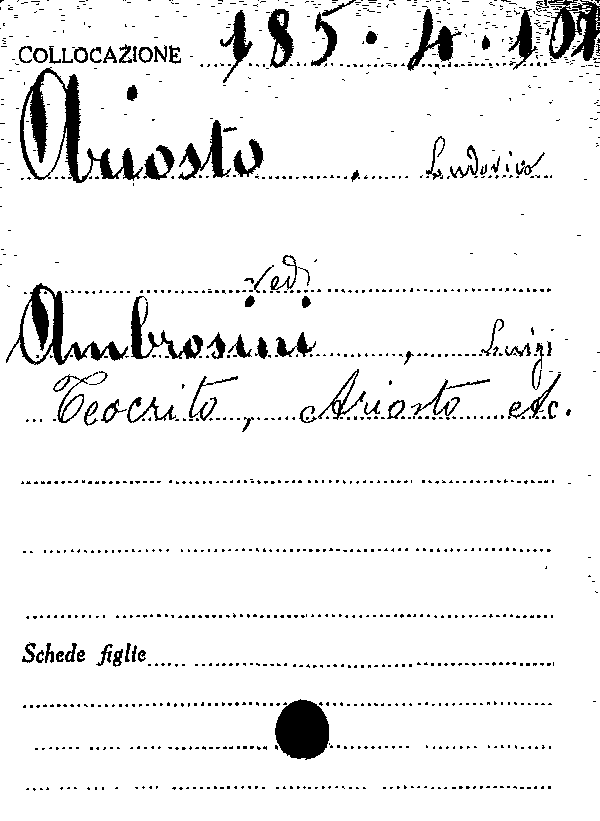 COLLOCAZIONE 185.4.101
Ariosto, Ludovico
vedi
Ambrosini, Luigi
Teocrito, Ariosto etc.
Schede figlie